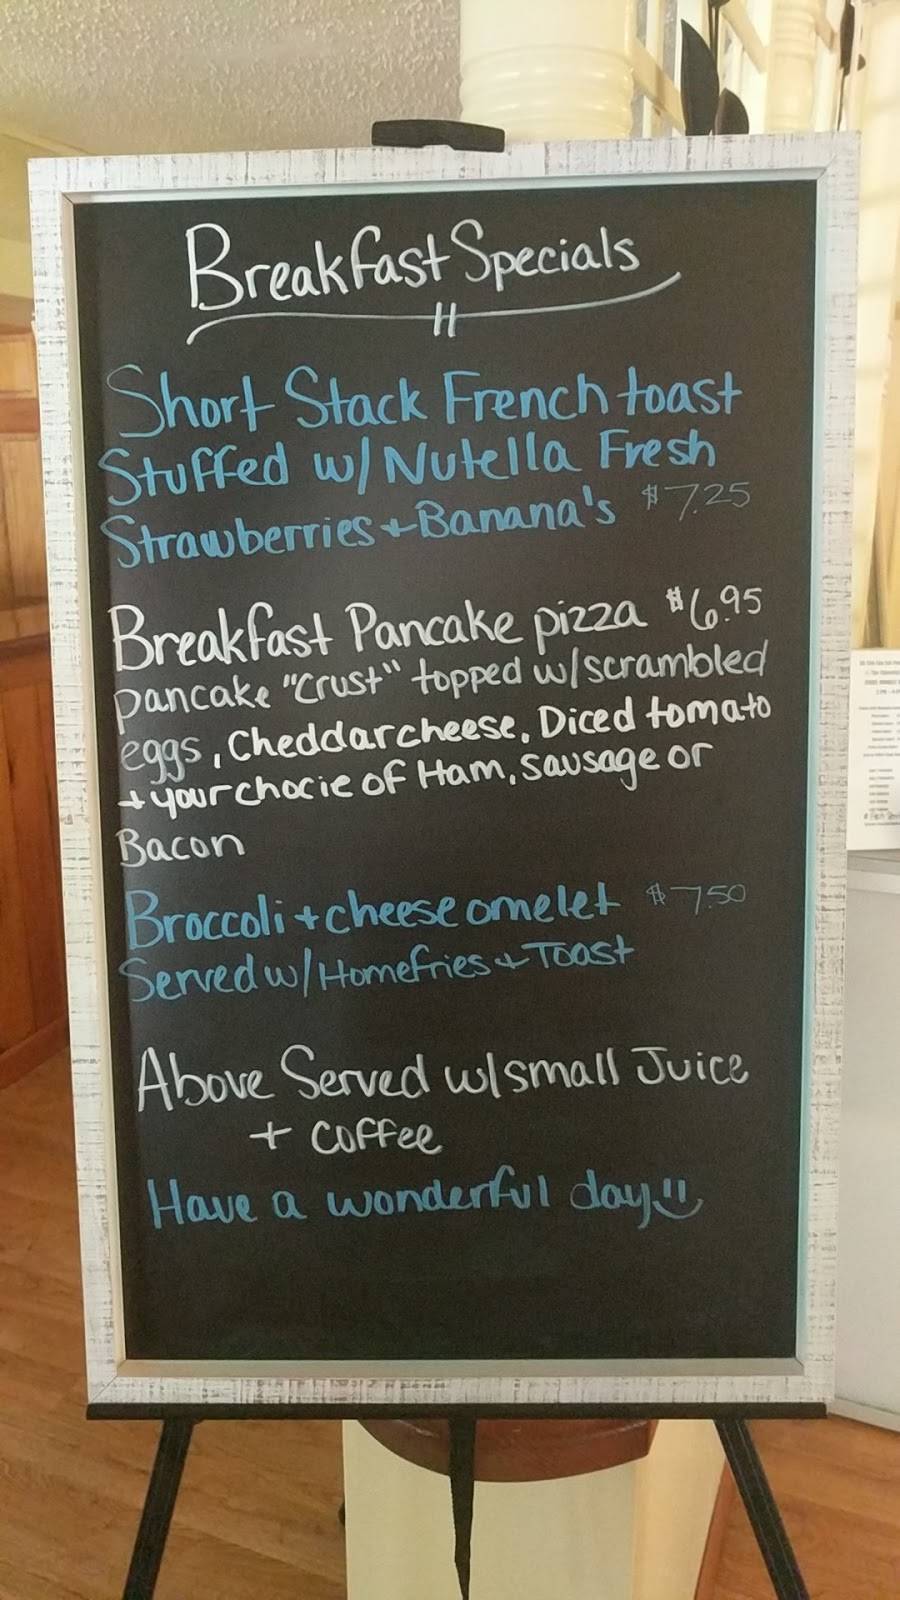 Breakfast Specials
Short Stack French toast
Stuffed w/ Nutella Fresh
Strawberries + Banana's $7.25
Breakfast Pancake pizza $6.95
pancake "Crust" topped w/scrambled
eggs, Cheddar cheese, Diced tomato
+ your chocie of Ham, sausage or
Bacon
Broccoli + cheese omelet $7.50
Served w/ Homefries + Toast
Above Served w/small Juice
+ Coffee
Have a wonderful day